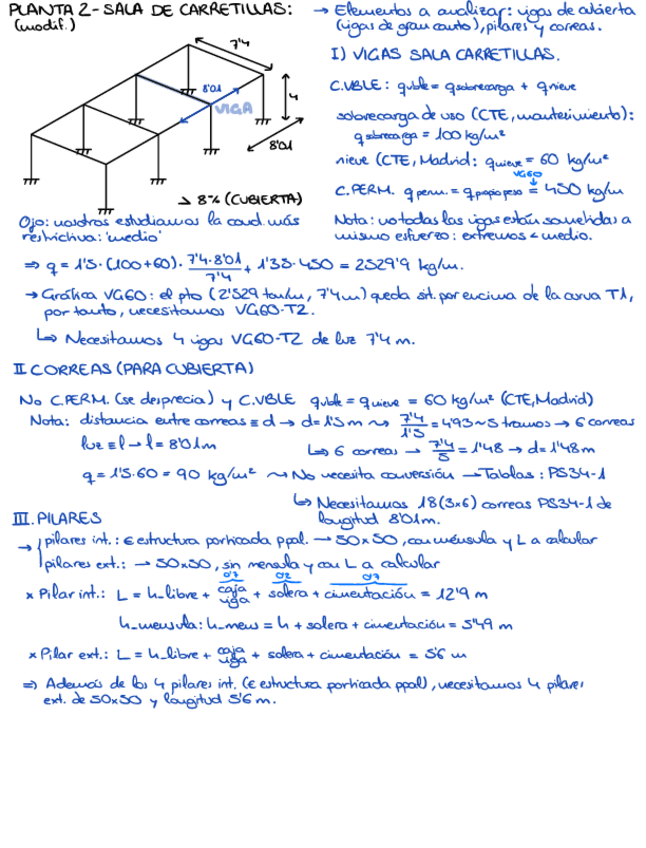 PLANTA 2 - SALA DE CARRETILLAS:
(modif.)
7'4
8'01
VIGA
4
8'01
↘ 8% (CUBIERTA)
→ Elementos a analizar: vigas de cubierta
(vigas de gran canto), pilares y correas.
I) VIGAS SALA CARRETILLAS.
C.VBLE: qvble = qsobrecarga + qnieve
sobrecarga de uso (CTE, mantenimiento):
qsobrecarga = 100 kg/m²
nieve (CTE, Madrid: qnieve = 60 kg/m²
VG60
C.PERM. qperm. = qpropio peso = 450 kg/m
Ojo: nosotros estudiamos la cond. más
restrictiva: 'medio'
Nota: no todas las vigas están sometidas a
mismo esfuerzo: extremos < medio.
⇒ q = 1'5 · (100+60) · 7'4·8'01/7'4 + 1'35·450 = 2529'9 kg/m.
→ Gráfica VG60: el pto (2'529 ton/m, 7'4m) queda sit. por encima de la curva T1,
por tanto, necesitamos VG60-T2.
↳ Necesitamos 4 vigas VG60-T2 de luz 7'4 m.
II CORREAS (PARA CUBIERTA)
No C.PERM. (se desprecia) y C.VBLE qvble = qnieve = 60 kg/m² (CTE, Madrid)
Nota: distancia entre correas ≡ d → d = 1'5m ⤳ 7'4/1'5 = 4'93 ~ 5 tramos → 6 correas
luz ≡ l → l = 8'01m
↳ 6 correas → 7'4/5 = 1'48 → d = 1'48m
q = 1'5·60 = 90 kg/m² ⤳ No necesita conversión → Tablas: PS34-1
↳ Necesitamos 18 (3×6) correas PS34-1 de
longitud 8'01m.
III. PILARES
→ pilares int.: ∈ estructura porticada ppal. → 50×50, con ménsula y L a calcular
pilares ext.: → 50×50, sin mensula y con L a calcular
0'7 0'2 0'7
× Pilar int.: L = h_libre + caja viga + solera + cimentación = 12'9 m
h_mensula: h_mens = h + solera + cimentación = 5'49 m
× Pilar ext.: L = h_libre + caja viga + solera + cimentación = 5'6 m
⇒ Además de los 4 pilares int. (∈ estructura porticada ppal), necesitamos 4 pilares
ext. de 50×50 y longitud 5'6 m.